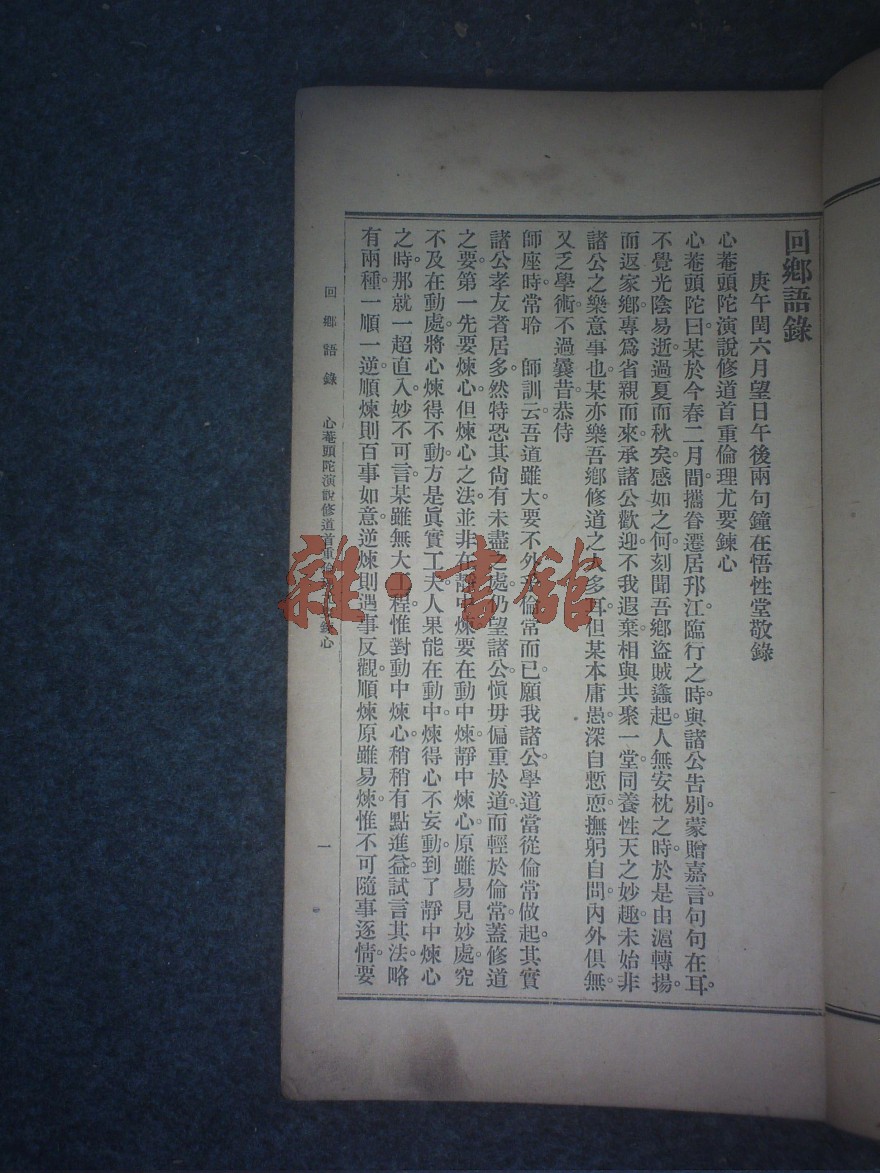 回鄉語錄
庚午閏六月望日午後兩句鐘在悟性堂敬錄
心菴頭陀演說修道首重倫理尤要鍊心
心菴頭陀曰某於今春二月間攜眷遷居邗江臨行之時與諸公告別蒙贈嘉言句句在耳。
不覺光陰易逝過夏而秋矣感如之何刻聞吾鄉盜賊蠭起人無安枕之時於是由滬轉揚。
而返家鄉專爲省親而來承諸公歡迎不我遐棄相與共聚一堂同養性天之妙趣未始非
諸公之樂意事也某亦樂吾鄉修道之人多耳但某本庸愚深自慙恧撫躬自問內外俱無。
又乏學術不過曩昔恭侍
師座時常聆　師訓云吾道雖大要不外乎倫常而已願我諸公學道當從倫常做起其實
諸公孝友者居多然特恐其尙有未盡之處仍望諸公愼毋偏重於道而輕於倫常蓋修道
之要第一先要煉心但煉心之法並非在靜中煉要在動中煉靜中煉心原雖易見妙處究
不及在動處將心煉得不動方是眞實工夫人果能在動中煉得心不妄動到了靜中煉心
之時那就一超直入妙不可言某雖無大工程惟對動中煉心稍稍有點進益試言其法略
有兩種一順一逆順煉則百事如意逆煉則遇事反觀順煉原雖易煉惟不可隨事逐情要
回鄉語錄　心菴頭陀演說修道首重　鍊心　一
雜·書館